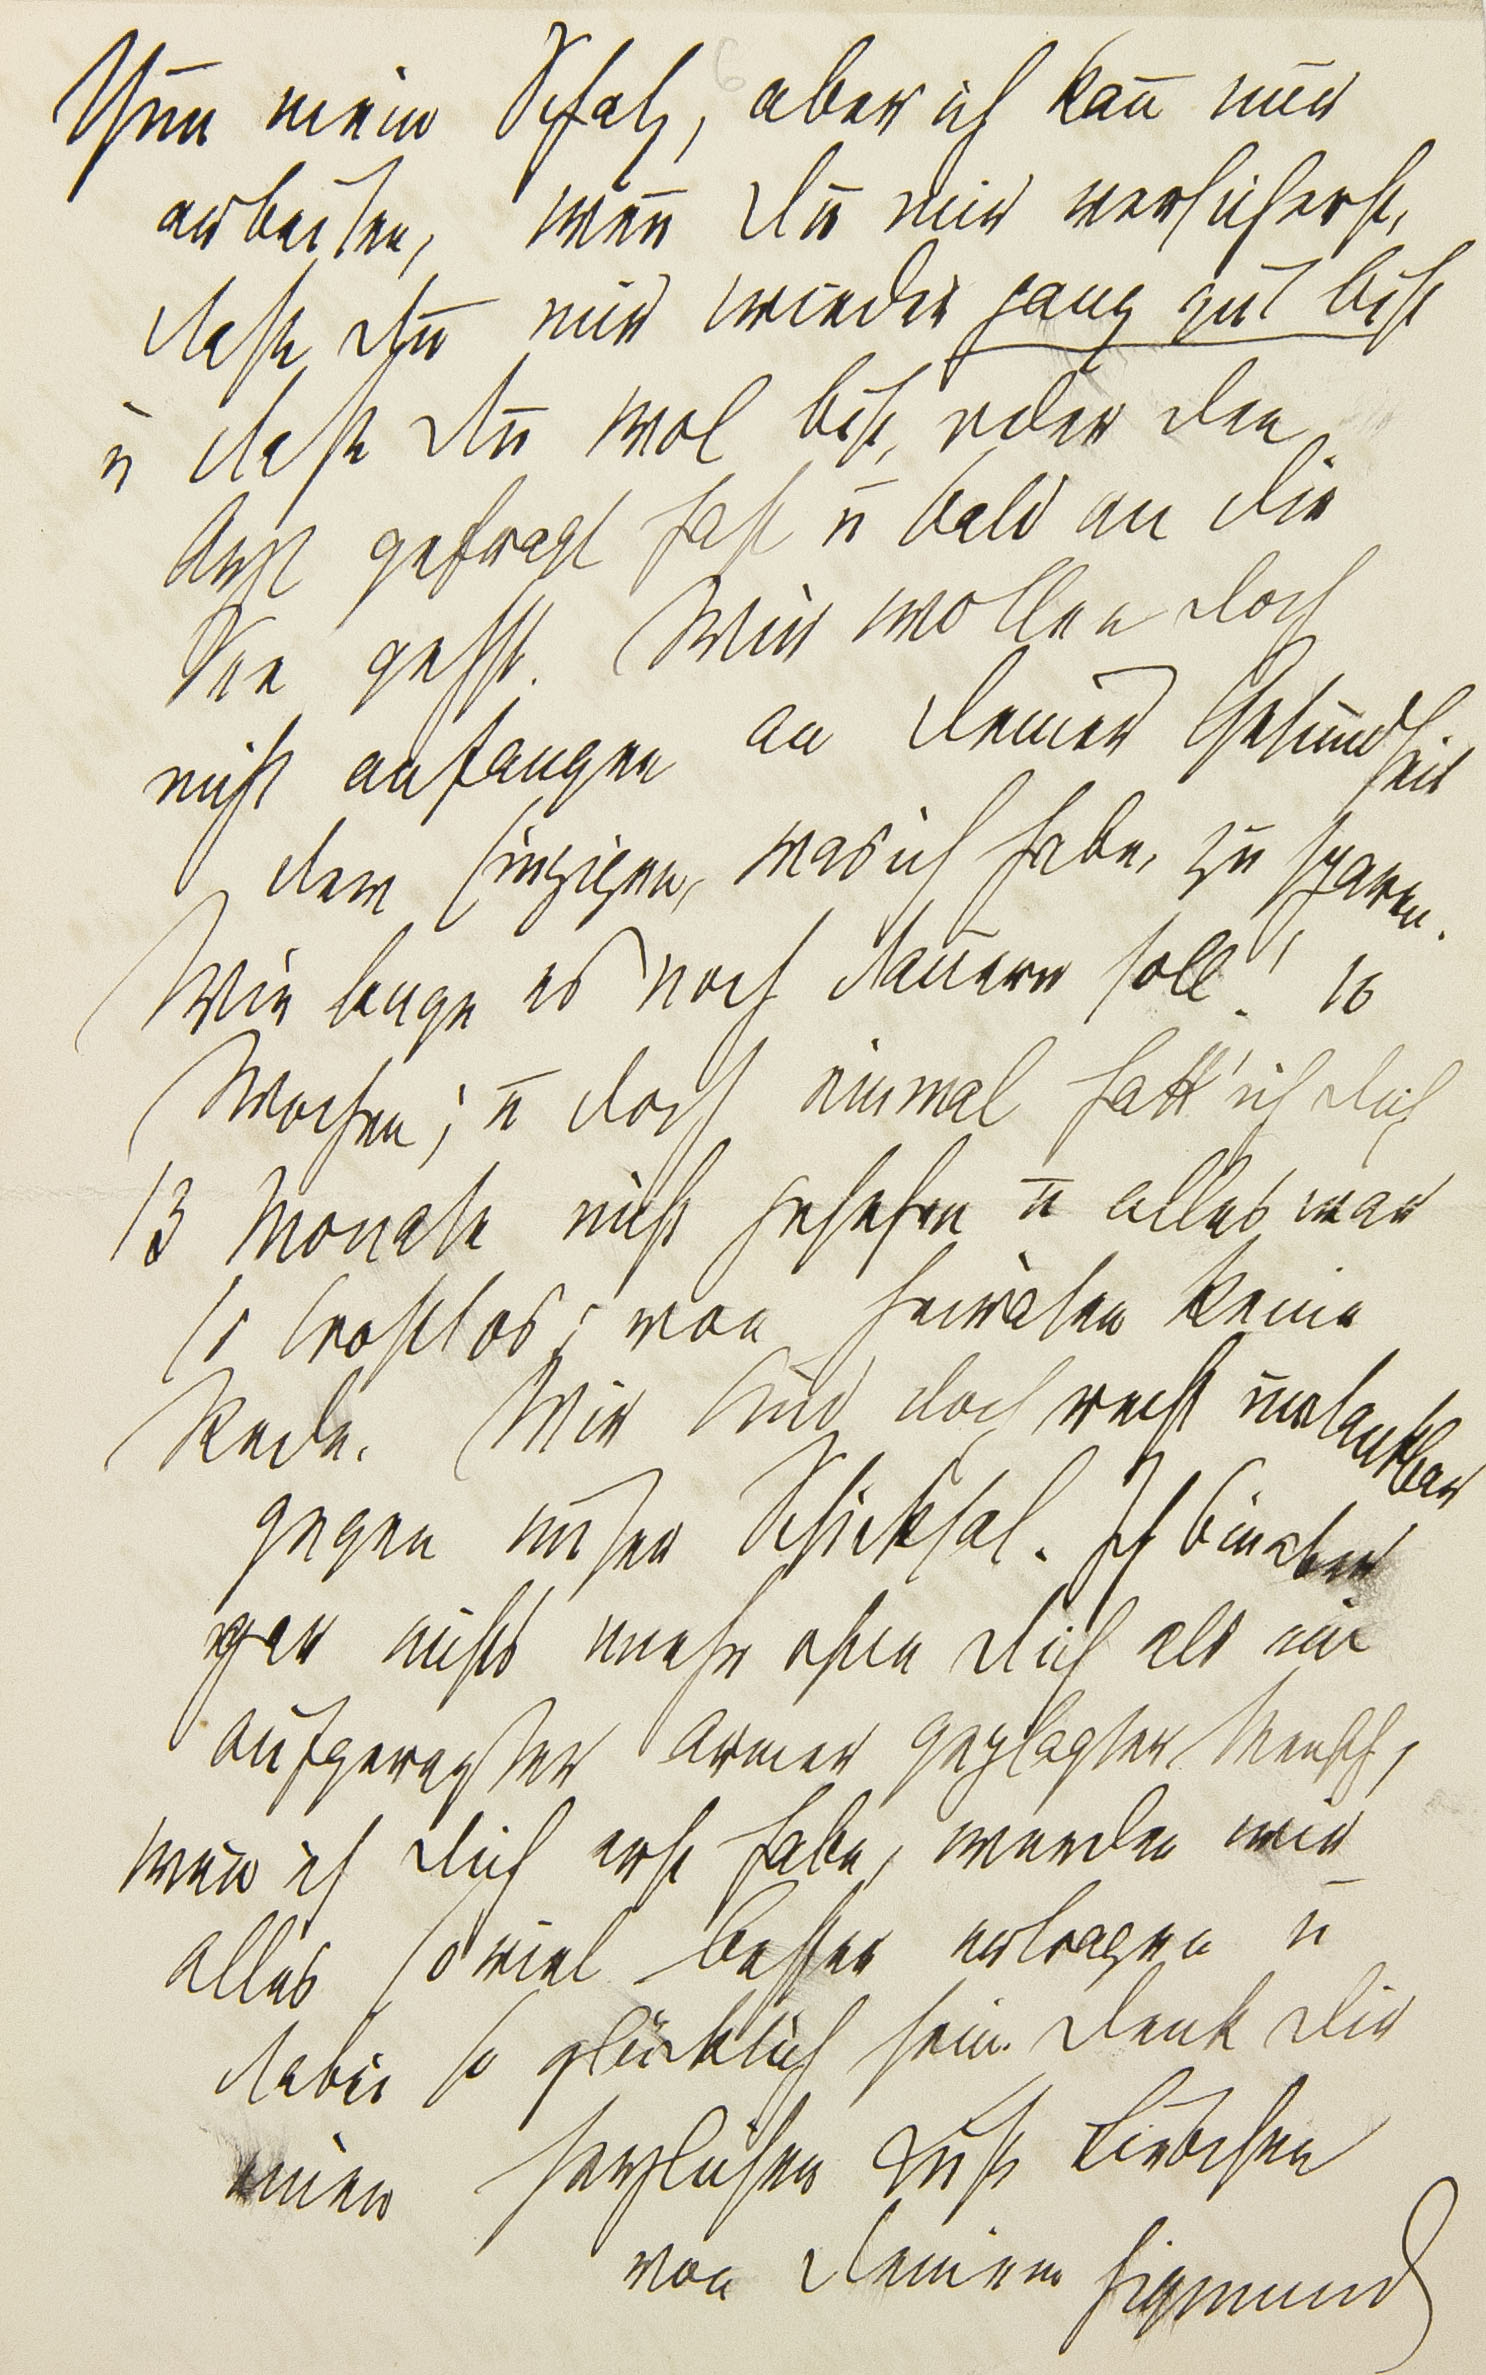 Nun mein Schatz, aber ich kan̄ nur
arbeiten, wen̄ Du mir versicherst,
daß Du mir wieder ganz gut bist
u daß Du wol bist, oder den
Arzt gefragt hast u bald an die
See gehst. Wir wollen doch
nicht anfangen an Deiner Gesundheit
dem Einzigen, was ich habe, zu sparen.
Wie lange es noch dauern soll! 16
Wochen; u doch einmal hatt' ich Dich
13 Monate nicht gesehen u alles war
so trostlos; von heiraten keine
Rede. Wir sind doch recht undankbar
gegen unser Schicksal. Ich bin aber
gar nichts mehr ohne Dich als ein
aufgeregter armer geplagter Mensch,
wen̄ ich Dich erst habe, werden wir
alles so viel besser ertragen u
dabei so glücklich sein. Denk Dir
einen herzlichen Kuß Liebchen
von Deinem Sigmund